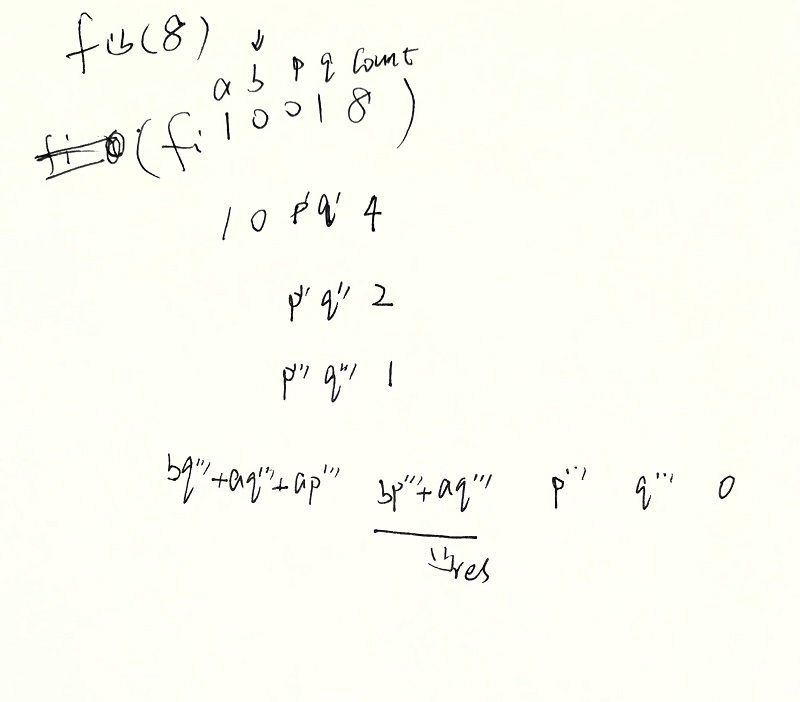 fib(8)
a b p q count
(fi 1 0 0 1 8)
1 0 p' q' 4
p'' q'' 2
p''' q''' 1
bq'''+aq'''+ap''' bp'''+aq''' p''' q''' 0
res